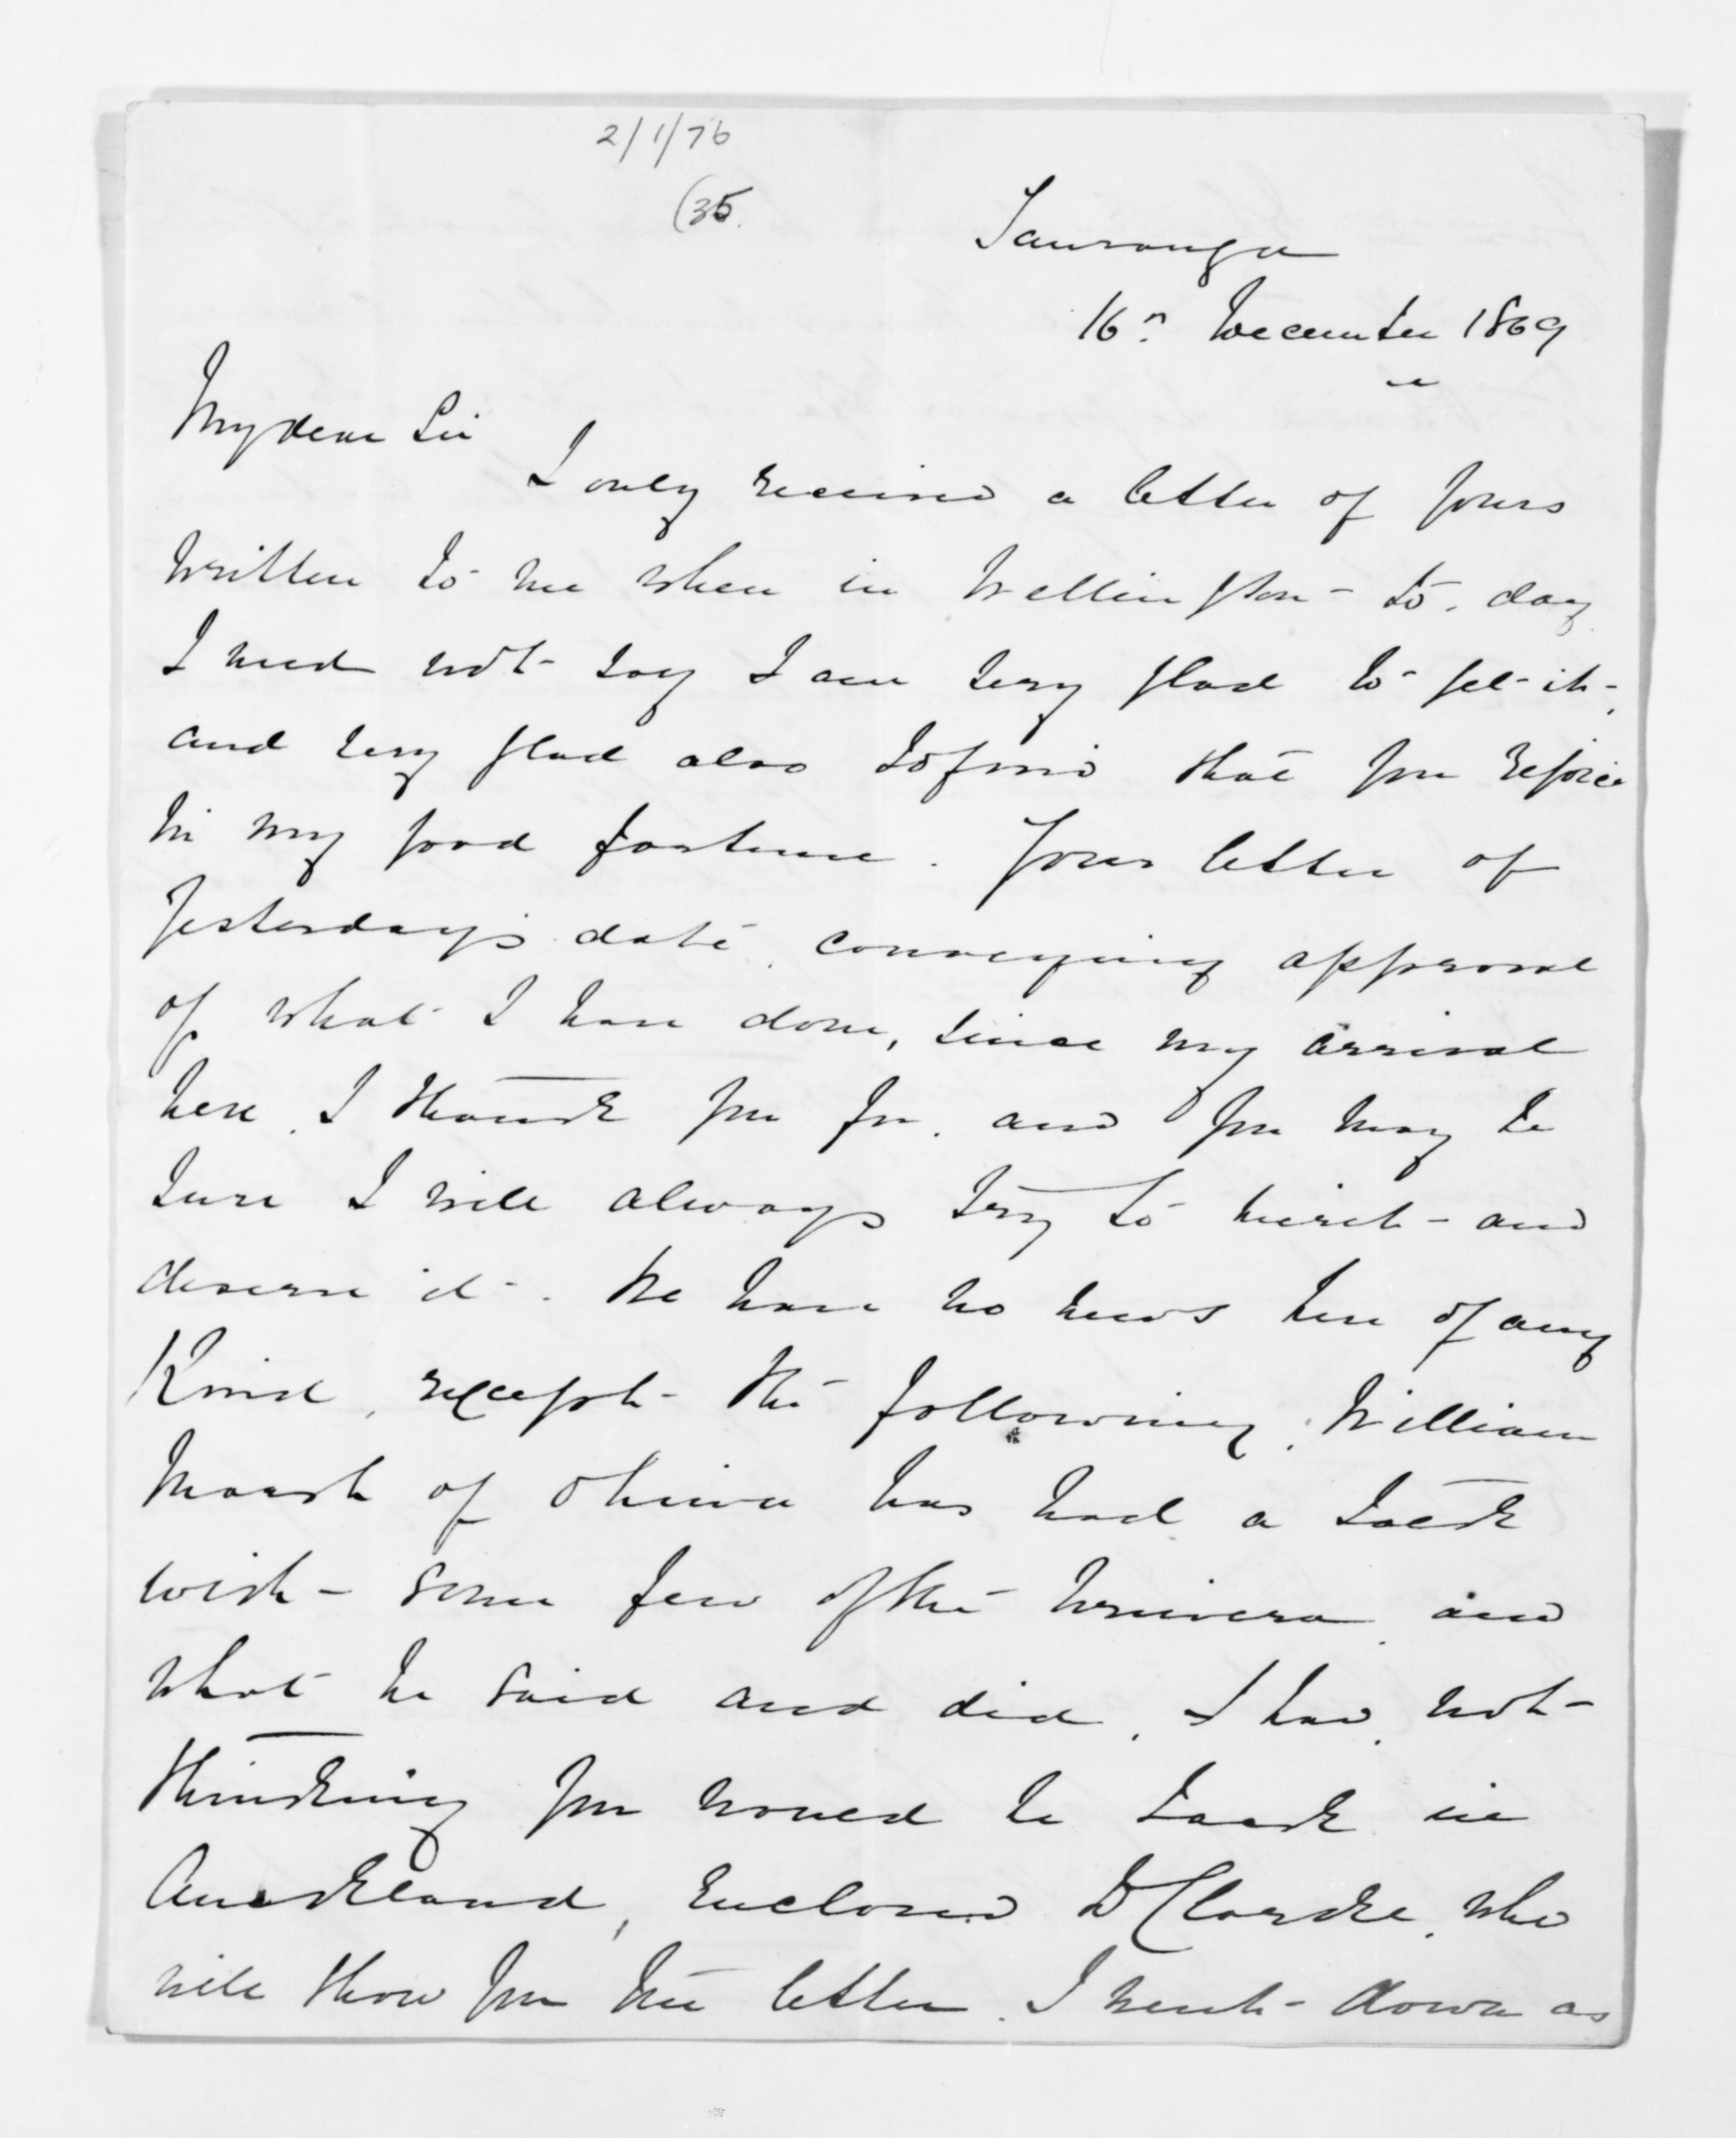 2/1/76
(35.
Tauranga
16th December 1869
My dear Sir
I only received a letter of yours
written to me when in Wellington to-day
I need not say I am very glad to get it,
and very glad also to find that you rejoice
in my good fortune. Your letter of
Yesterday's date, conveying approval
of what I have done, since my arrival
here, I thank you for, and you may be
sure I will always try to merit and
deserve it. We have no news here of any
Kind, except the following, William
Marsh of Ohiwa has had a talk
with some few of the Urewera, and
what he said and did, I have, not
thinking you would be back in
Auckland, enclosed to Clarke, who
will show you the letter. I went down as